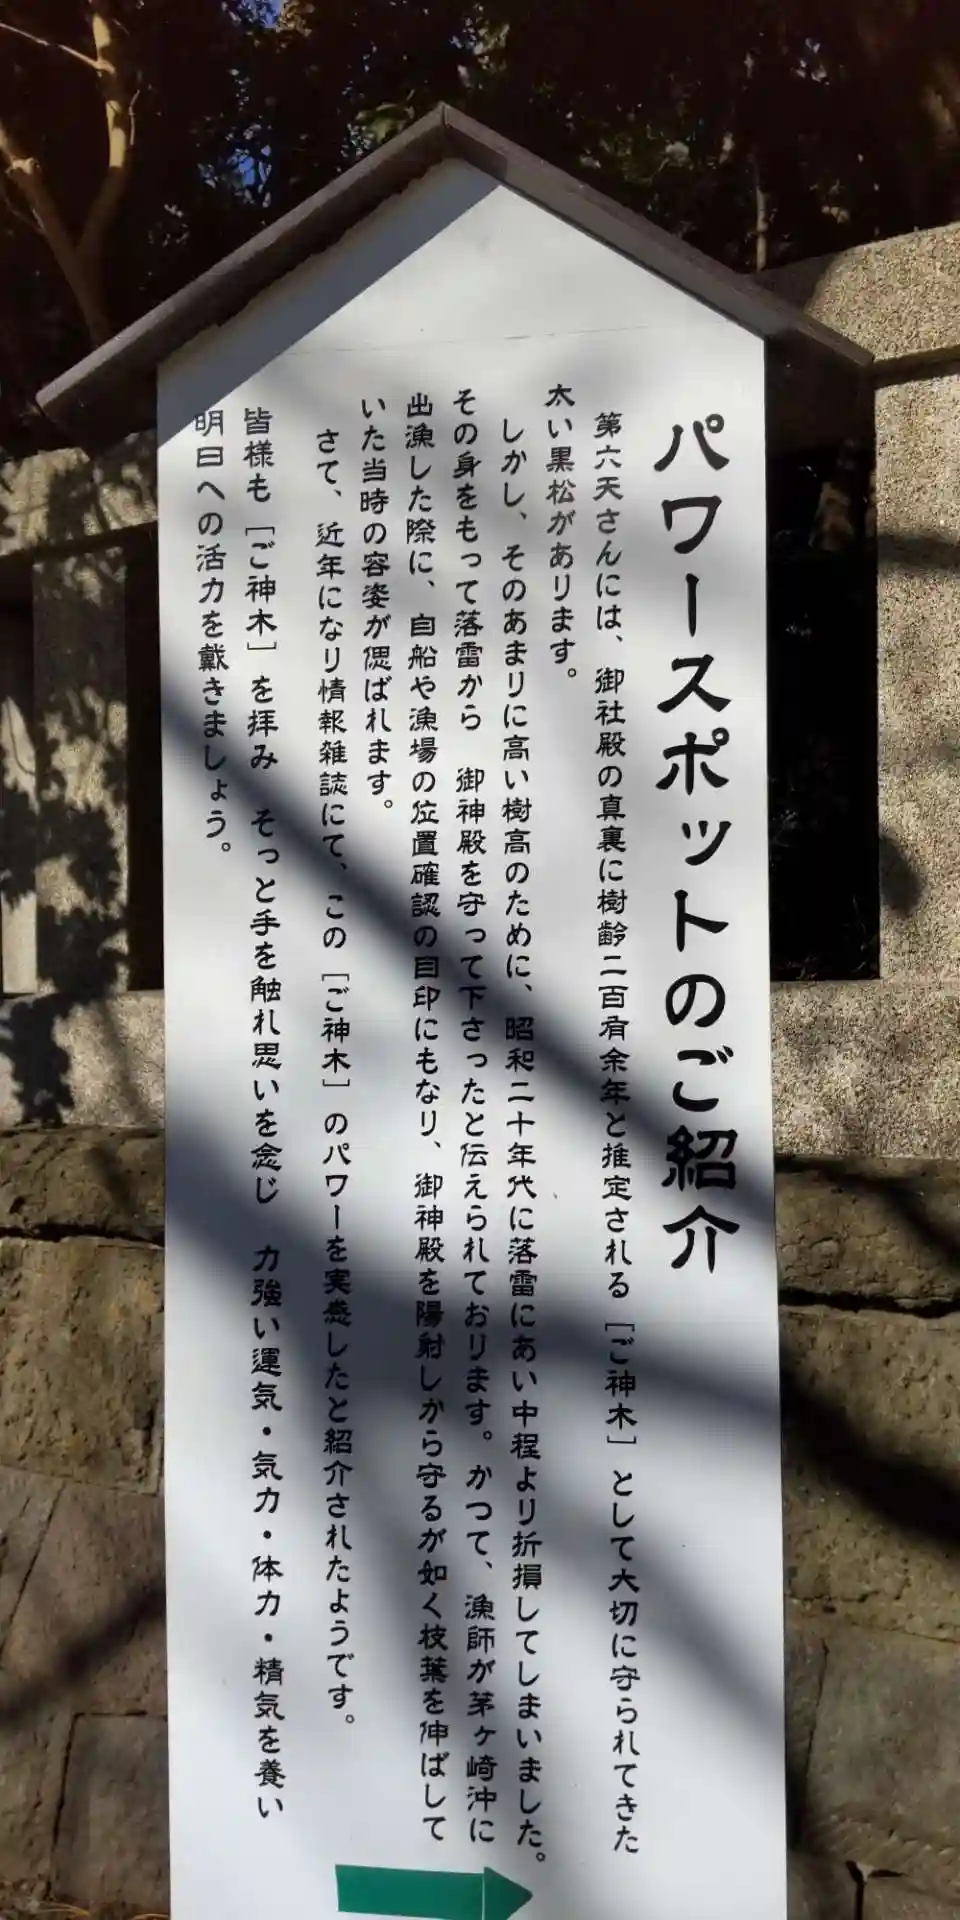 パワースポットのご紹介
第六天さんには、御社殿の真裏に樹齢二百有余年と推定される［ご神木］として大切に守られてきた
太い黒松があります。
しかし、そのあまりに高い樹高のために、昭和二十年代に落雷にあい中程より折損してしまいました。
その身をもって落雷から　御神殿を守って下さったと伝えられております。かつて、漁師が茅ヶ崎沖に
出漁した際に、自船や漁場の位置確認の目印にもなり、御神殿を陽射しから守るが如く枝葉を伸ばして
いた当時の容姿が偲ばれます。
さて、近年になり情報雑誌にて、この［ご神木］のパワーを実感したと紹介されたようです。
皆様も［ご神木］を拝み　そっと手を触れ思いを念じ　力強い運気・気力・体力・精気を養い
明日への活力を戴きましょう。